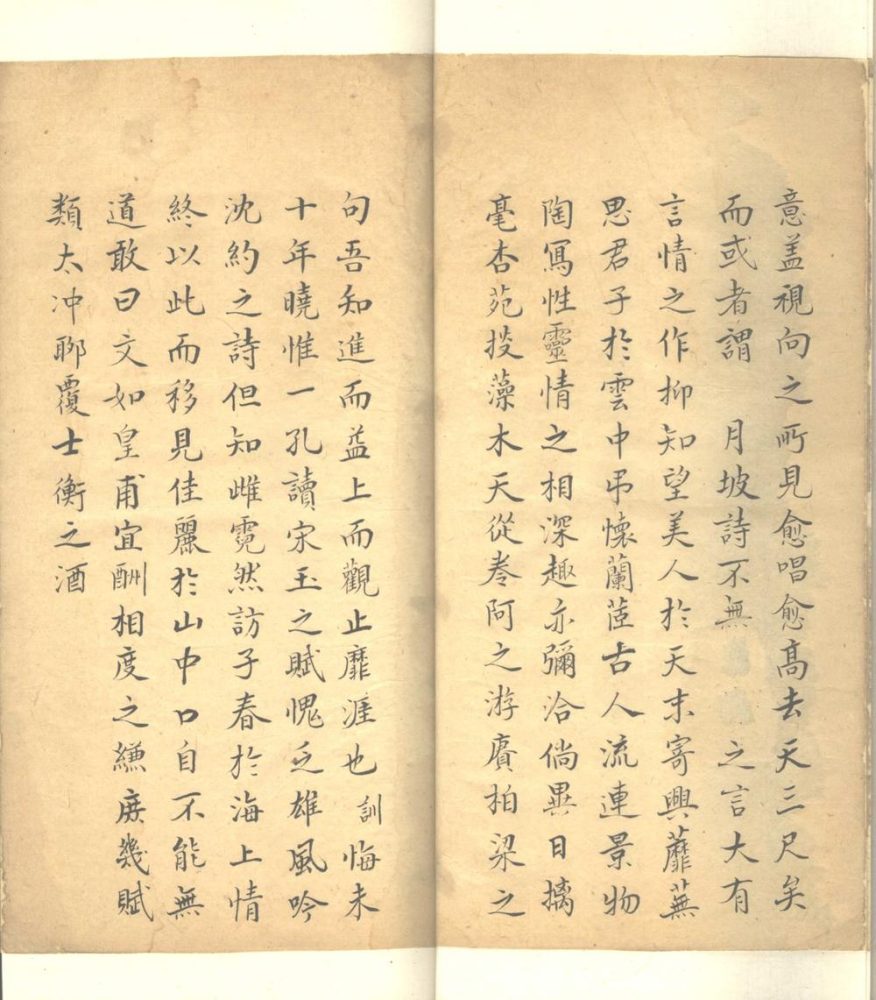 意盖視向之所見愈唱愈高去天三尺矣
而或者謂　月坡詩不無　之言大有
言情之作抑知望美人於天末寄興蘼蕪
思君子於雲中弔懷蘭茝古人流連景物
陶寫性靈情之相深趣亦彌洽倘異日摛
毫杏苑掞藻木天從卷阿之游賡柏梁之
句吾知進而益上而觀止靡涯也訓悔未
十年曉惟一孔讀宋玉之賦愧乏雄風吟
沈約之詩但知雌霓然訪子春於海上情
終以此而移見佳麗於山中口自不能無
道敢曰文如皇甫宜酬相度之縑庶幾賦
類太冲聊覆士衡之酒